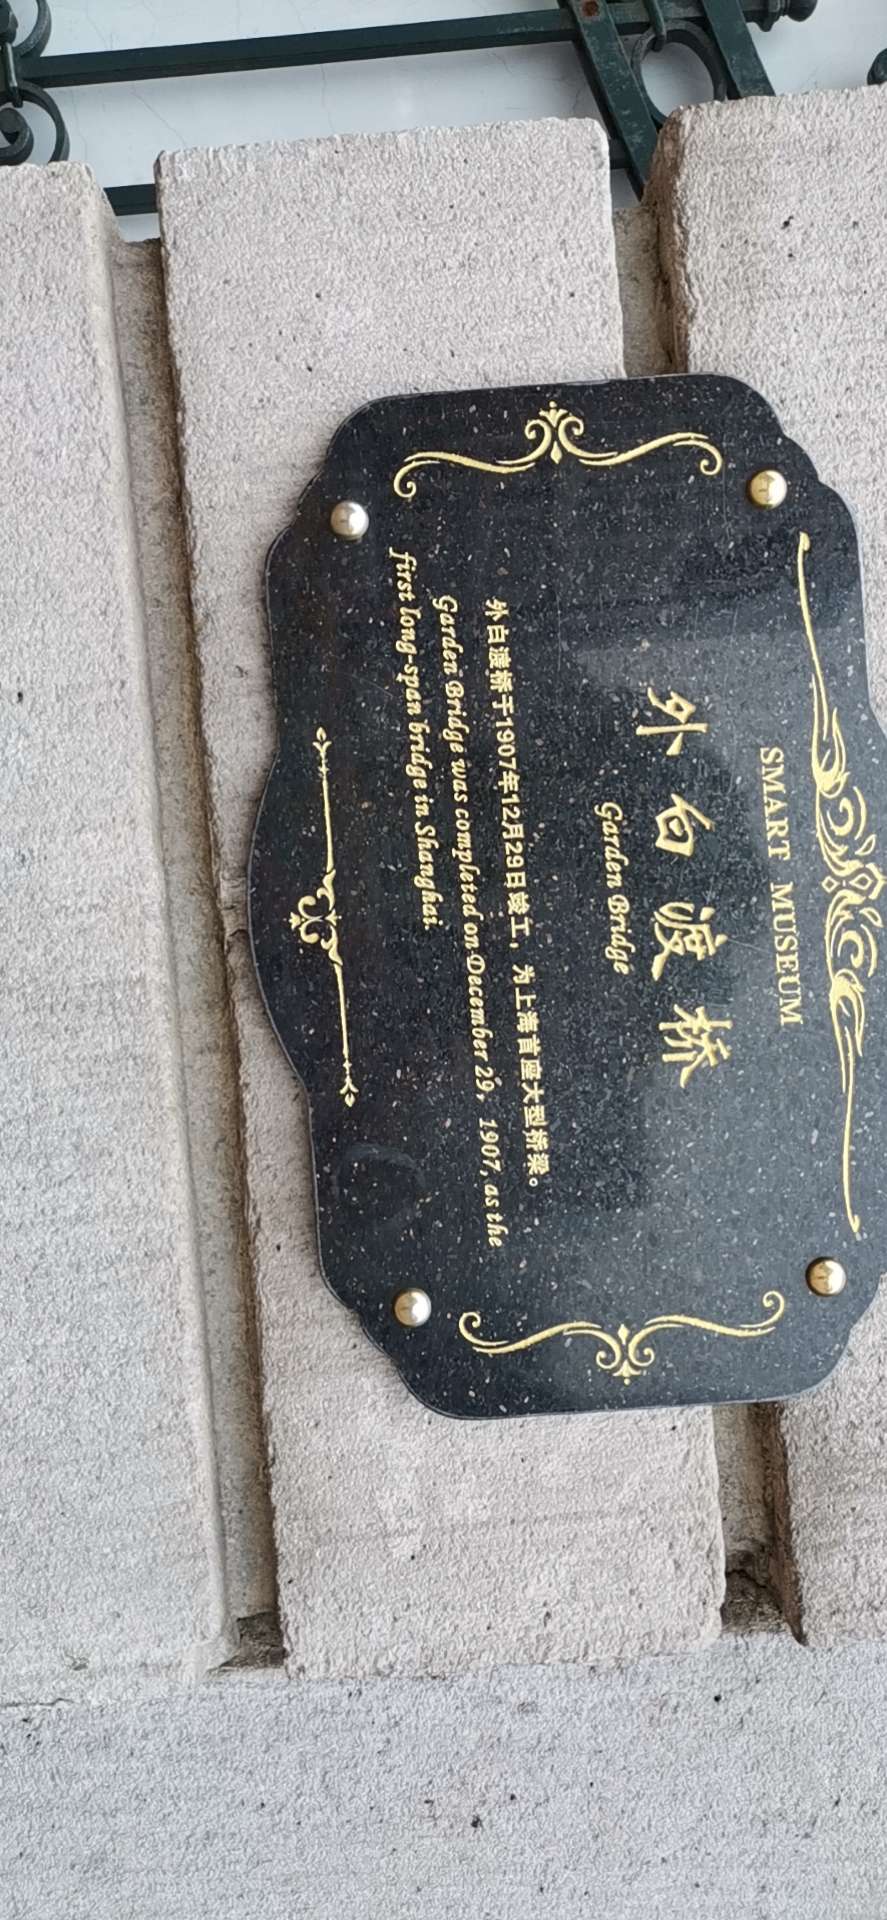 SMART MUSEUM
外白渡桥
Garden Bridge
外白渡桥于1907年12月29日竣工，为上海首座大型桥梁。
Garden Bridge was completed on December 29, 1907, as the
first long-span bridge in Shanghai.